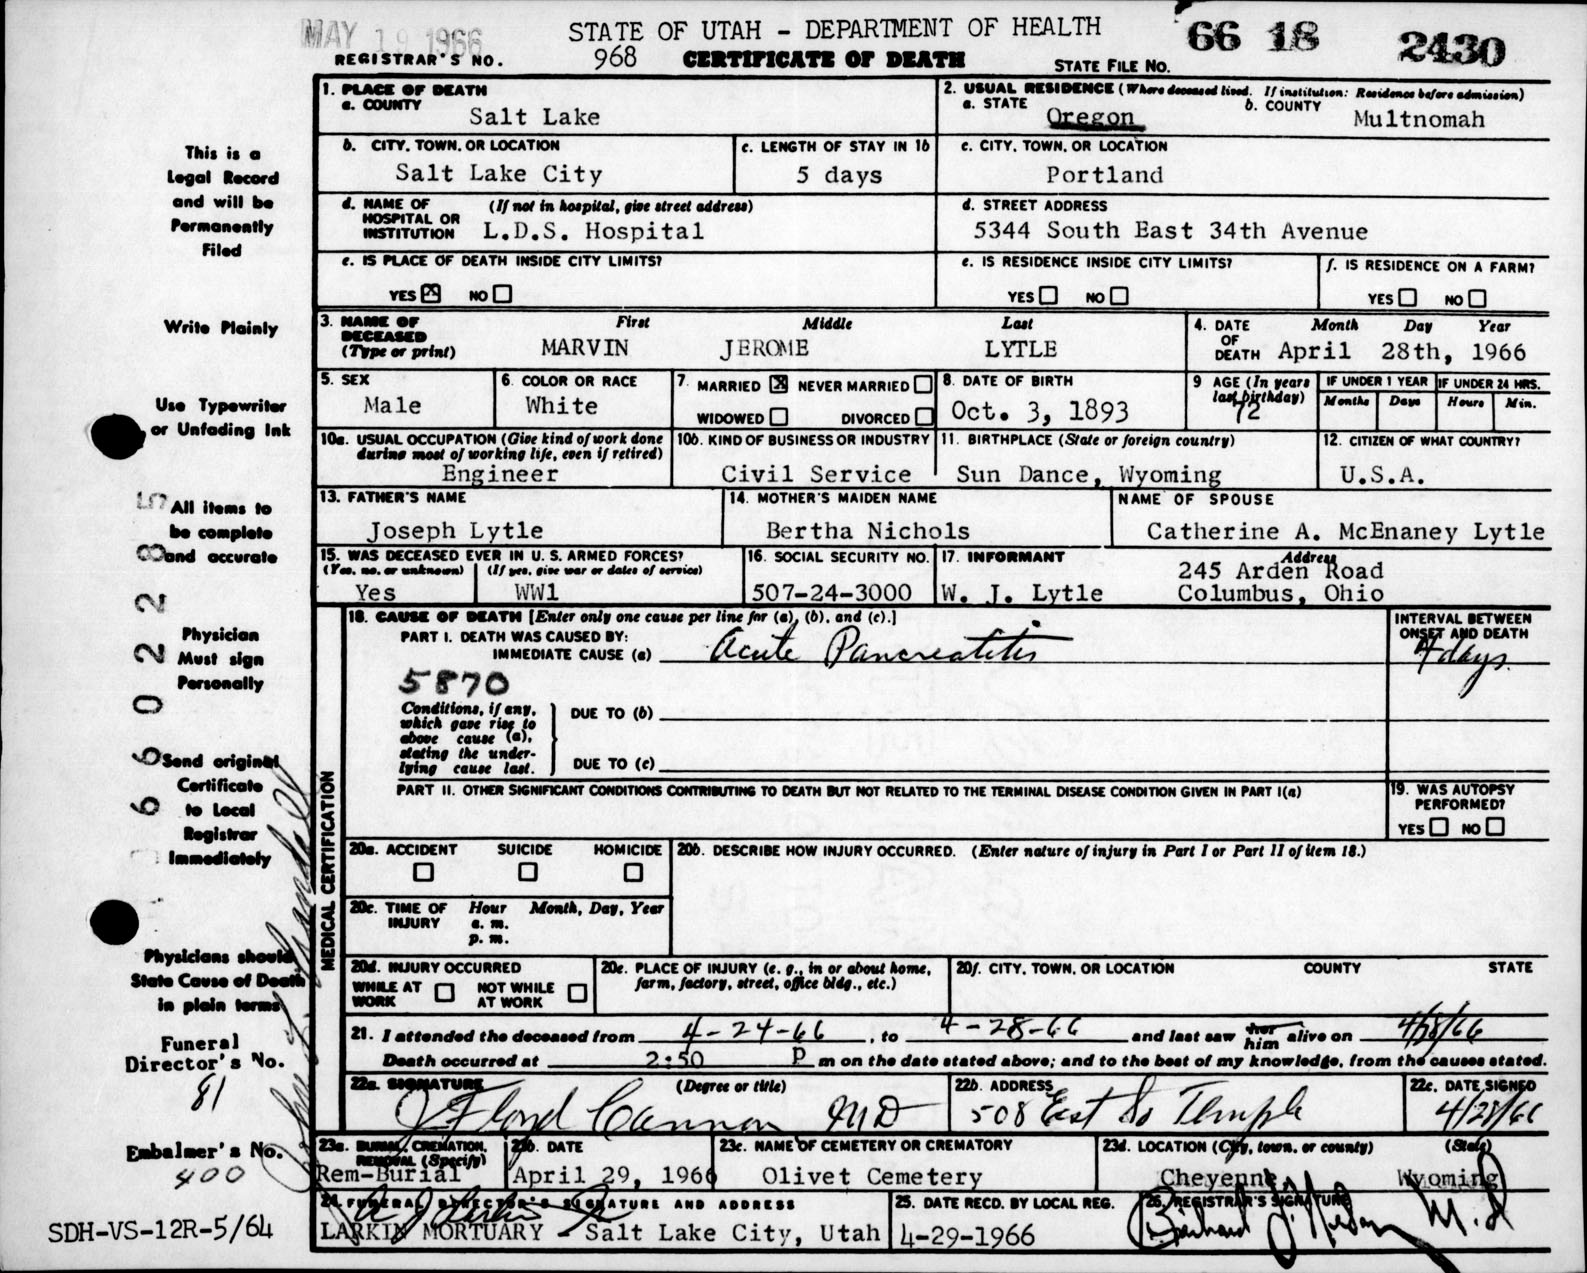 MAY 19 1966
STATE OF UTAH - DEPARTMENT OF HEALTH
66 18 2430
REGISTRAR'S NO. 968 CERTIFICATE OF DEATH STATE FILE NO.
1. PLACE OF DEATH
a. COUNTY
Salt Lake
2. USUAL RESIDENCE (Where deceased lived. If institution: Residence before admission)
a. STATE Oregon b. COUNTY Multnomah
b. CITY, TOWN, OR LOCATION
Salt Lake City
c. LENGTH OF STAY IN 1b
5 days
c. CITY, TOWN, OR LOCATION
Portland
d. NAME OF HOSPITAL OR INSTITUTION (If not in hospital, give street address)
L.D.S. Hospital
d. STREET ADDRESS
5344 South East 34th Avenue
e. IS PLACE OF DEATH INSIDE CITY LIMITS?
YES X NO
e. IS RESIDENCE INSIDE CITY LIMITS?
YES NO
f. IS RESIDENCE ON A FARM?
YES NO
3. NAME OF DECEASED (Type or print)
First Middle Last
MARVIN JEROME LYTLE
4. DATE OF DEATH Month Day Year
April 28th, 1966
5. SEX
Male
6. COLOR OR RACE
White
7. MARRIED X NEVER MARRIED
WIDOWED DIVORCED
8. DATE OF BIRTH
Oct. 3, 1893
9 AGE (In years last birthday)
72
IF UNDER 1 YEAR IF UNDER 24 HRS.
Months Days Hours Min.
10a. USUAL OCCUPATION (Give kind of work done during most of working life, even if retired)
Engineer
10b. KIND OF BUSINESS OR INDUSTRY
Civil Service
11. BIRTHPLACE (State or foreign country)
Sun Dance, Wyoming
12. CITIZEN OF WHAT COUNTRY?
U.S.A.
13. FATHER'S NAME
Joseph Lytle
14. MOTHER'S MAIDEN NAME
Bertha Nichols
NAME OF SPOUSE
Catherine A. McEnaney Lytle
15. WAS DECEASED EVER IN U. S. ARMED FORCES?
(Yes, no, or unknown) (If yes, give war or dates of service)
Yes WW1
16. SOCIAL SECURITY NO.
507-24-3000
17. INFORMANT Address
W. J. Lytle
245 Arden Road
Columbus, Ohio
MEDICAL CERTIFICATION
18. CAUSE OF DEATH [Enter only one cause per line for (a), (b), and (c).]
PART I. DEATH WAS CAUSED BY:
IMMEDIATE CAUSE (a) Acute Pancreatitis
INTERVAL BETWEEN ONSET AND DEATH
4 days.
5870
Conditions, if any,
which gave rise to
above cause (a),
stating the under-
lying cause last.
DUE TO (b)
DUE TO (c)
PART II. OTHER SIGNIFICANT CONDITIONS CONTRIBUTING TO DEATH BUT NOT RELATED TO THE TERMINAL DISEASE CONDITION GIVEN IN PART I(a)
19. WAS AUTOPSY PERFORMED?
YES NO
20a. ACCIDENT SUICIDE HOMICIDE
20b. DESCRIBE HOW INJURY OCCURRED. (Enter nature of injury in Part I or Part II of item 18.)
20c. TIME OF INJURY Hour Month, Day, Year
a. m.
p. m.
20d. INJURY OCCURRED
WHILE AT WORK NOT WHILE AT WORK
20e. PLACE OF INJURY (e. g., in or about home, farm, factory, street, office bldg., etc.)
20f. CITY, TOWN, OR LOCATION COUNTY STATE
21. I attended the deceased from 4-24-66, to 4-28-66 and last saw her him alive on 4/28/66
Death occurred at 2:50 P m on the date stated above; and to the best of my knowledge, from the causes stated.
22a. SIGNATURE (Degree or title)
J Floyd Cannon MD
22b. ADDRESS
508 East So Temple
22c. DATE SIGNED
4/28/66
23a. BURIAL, CREMATION, REMOVAL (Specify)
Rem-Burial
23b. DATE
April 29, 1966
23c. NAME OF CEMETERY OR CREMATORY
Olivet Cemetery
23d. LOCATION (City, town, or county) (State)
Cheyenne Wyoming
24. FUNERAL DIRECTOR'S SIGNATURE AND ADDRESS
LARKIN MORTUARY - Salt Lake City, Utah
25. DATE RECD. BY LOCAL REG.
4-29-1966
26. REGISTRAR'S SIGNATURE
M.D
This is a
Legal Record
and will be
Permanently
Filed
Write Plainly
Use Typewriter
or Unfading Ink
All items to
be complete
and accurate
Physician
Must sign
Personally
Send original
Certificate
to Local
Registrar
Immediately
Physicians should
State Cause of Death
in plain terms
Funeral
Director's No.
81
Embalmer's No.
400
SDH-VS-12R-5/64